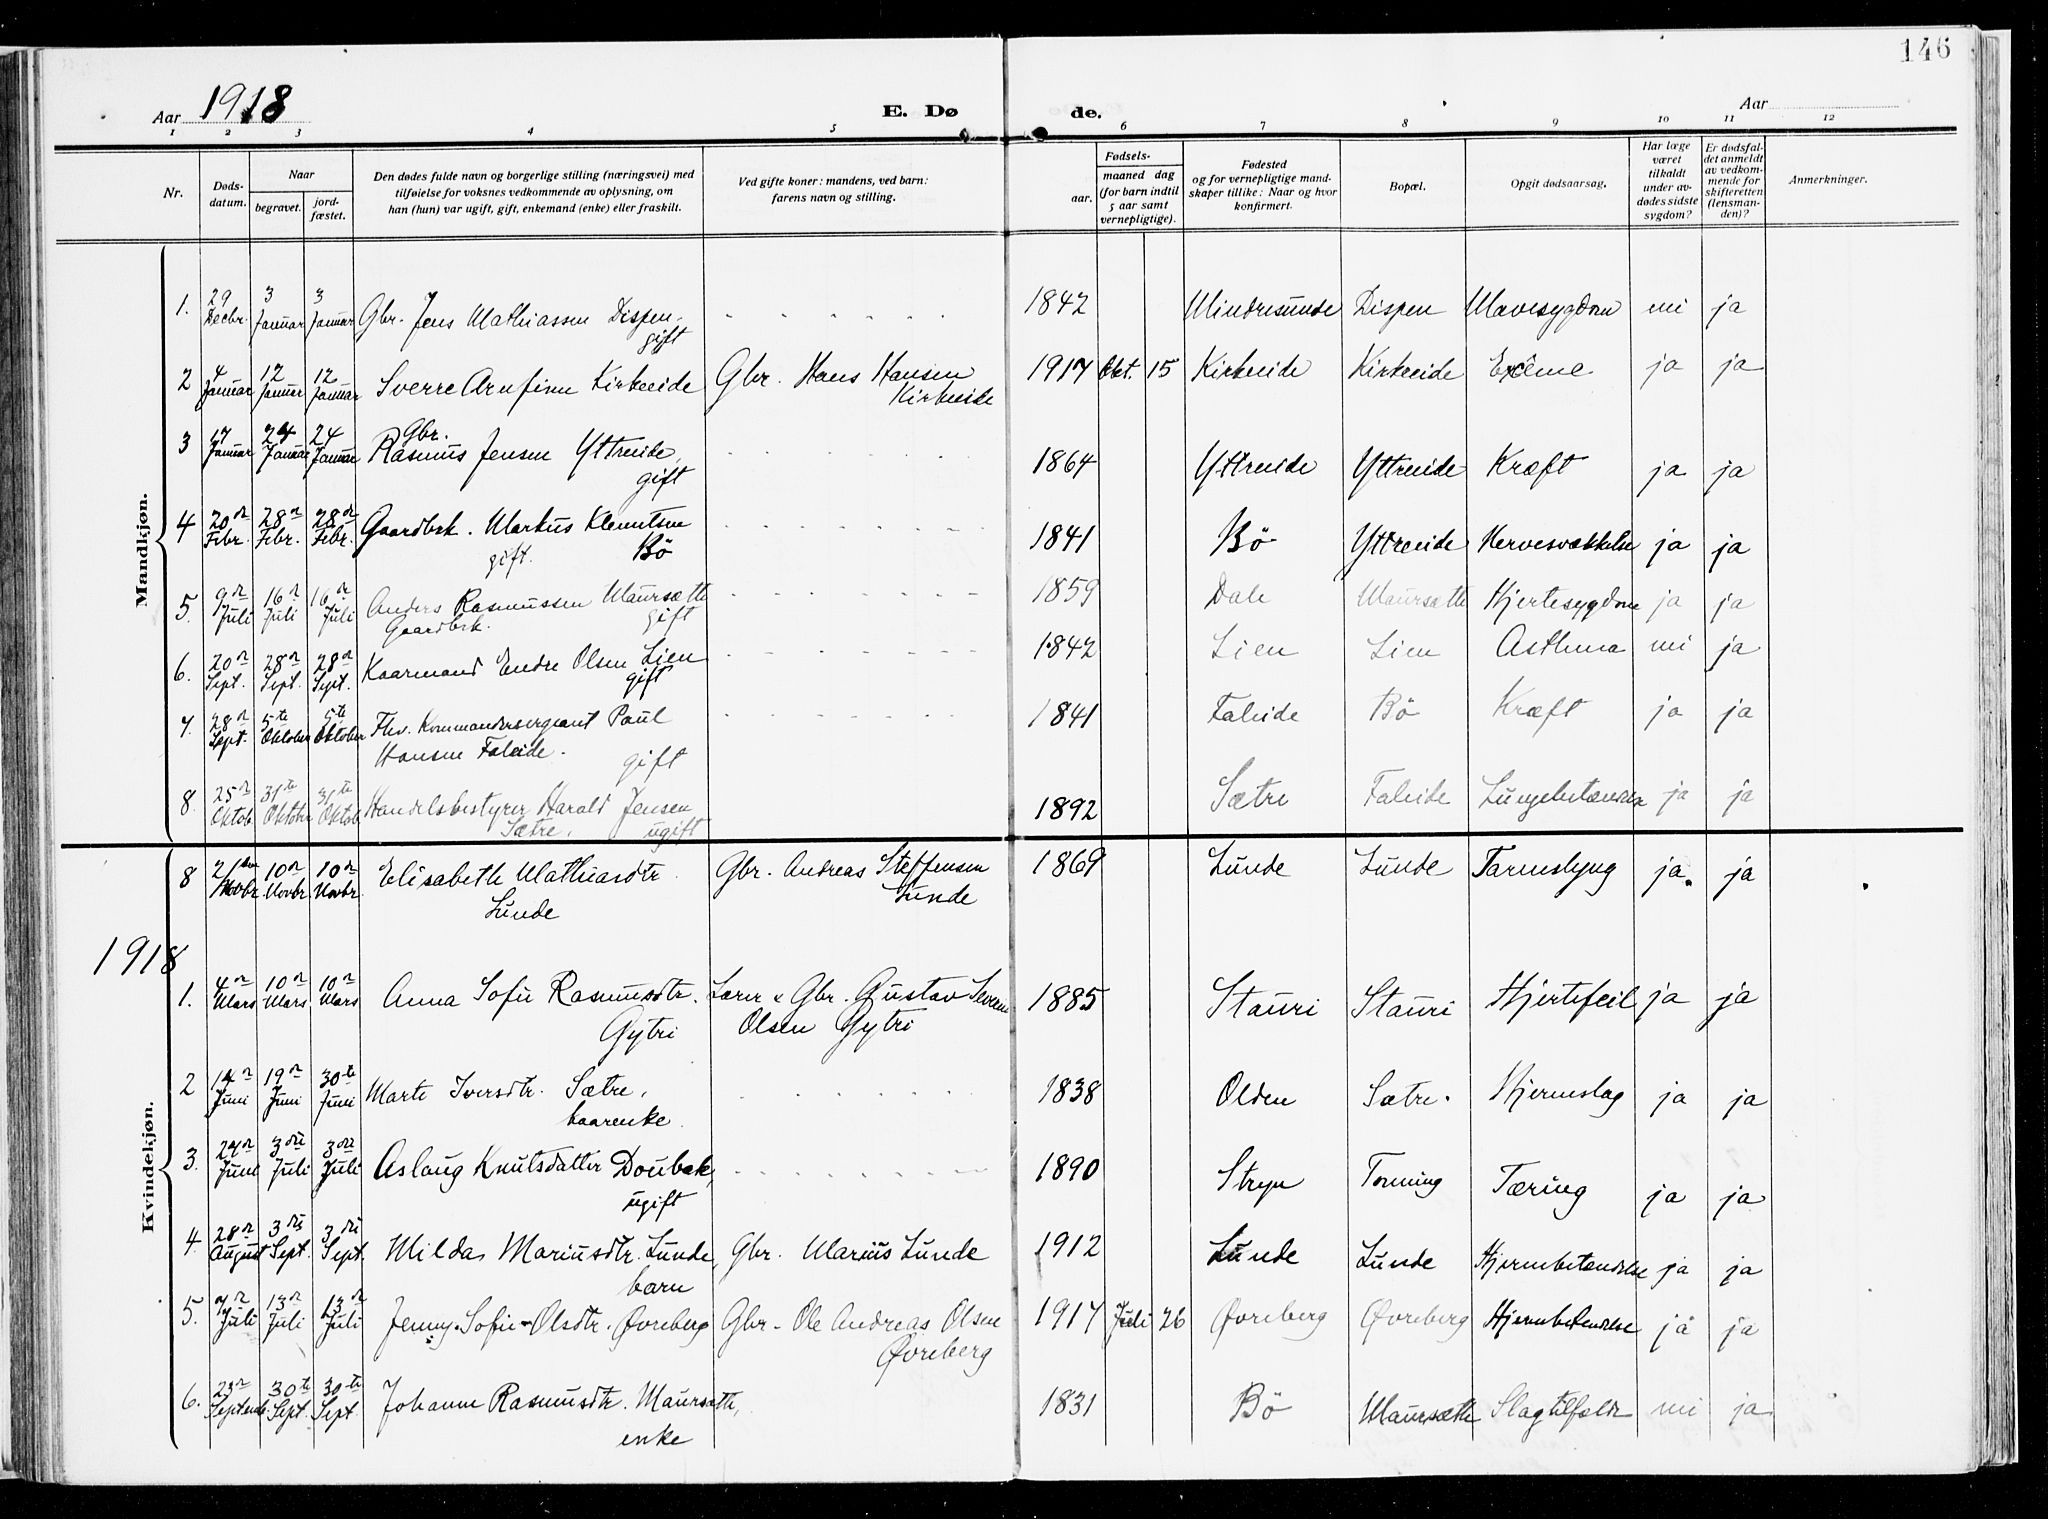 146
Aar 1918
E. Dø
de.
Aar
1 2 3 4 5 6 7 8 9 10 11 12
Nr.
Døds-
datum.
Naar
begravet.
jord-
fæstet.
Den dødes fulde navn og borgerlige stilling (næringsvei) med
tilføielse for voksnes vedkommende av oplysning, om
han (hun) var ugift, gift, enkemand (enke) eller fraskilt.
Ved gifte koner: mandens, ved barn:
farens navn og stilling.
Fødsels-
aar.
maaned dag
(for barn indtil
5 aar samt
vernepligtige).
Fødested
og for vernepligtige mand-
skaper tillike: Naar og hvor
konfirmert.
Bopæl.
Opgit dødsaarsag.
Har læge
været
tilkaldt
under av-
dødes sidste
sygdom?
Er dødsfal-
det anmeldt
av vedkom-
mende for
skifteretten
(lensman-
den)?
Anmerkninger.
Mandkjøn.
1. 29 Decbr. 3 Januar 3 Januar Gbr. Jens Mathiassen Dispen. gift 1842 Mindresunde Dispen Mavesygdom nei ja
2 4 Januar 12 Januar 12 Januar Sverre Arnfinn Kirkeeide Gbr. Hans Hansen Kirkeeide 1917 Okt. 15 Kirkeeide Kirkeeide Exême ja ja
3 17 Januar 24 Januar 24 Januar Gbr. Rasmus Jensen Yttreeide, gift 1864 Yttreeide Yttreeide Kræft ja ja
4 20de Febr. 28de Febr. 28de Febr. Gaardbrk. Markus Klemetsen Bö gift. 1841 Bö Yttreeide Nervesvækkelse ja ja
5. 9de Juli 16de Juli 16de Juli Anders Rasmussen Maursæth Gaardbrk. gift 1859 Dale Maursæth Hjertesygdom ja ja
6. 20de Sept. 28de Sept. 28de Sept. Kaarmand Endre Olsen Lien gift 1842 Lien Lien Asthma nei ja
7. 28de Sept. 5te Oktober 5te Oktober Fhv. Kommandersergeant Paul Hansen Faleide. gift 1841 Faleide Bö Kræft ja ja
8. 25de Oktob 31te Oktober 31te Oktob Handelsbestyrer Harald Jensen Sætre. ugift 1892 Sætre Faleide Lungebetændelse ja ja
8 2den Novbr. 10de Novbr. 10de Novbr. Elisabeth Mathiasdtr. Lunde Gbr. Andreas Steffensen Lunde 1869 Lunde Lunde Tarmslyng ja. ja
1918
Kvindekjøn.
1. 4de Mars 10de Mars 10de Mars Anna Sofie Rasmusdtr. Gytri Lærer & Gbr. Gustav Severin Olsen Gytri 1885 Stauri Stauri Hjertefeil ja ja
2 14de Juni 19de Juni 30te Juni Marte Iversdtr. Sætre, kaarenke 1838 Olden Sætre. Hjerneslag ja ja
3. 24de Juni 3die Juli 3die Juli Aslaug Knutsdatter Doubæk, ugift 1890 Stryn Tonning Tæring ja ja
4. 28de August 3die Sept. 3die Sept. Milda Mariusdtr. Lunde, barn Gbr. Marius Lunde 1912 Lunde Lunde Hjernebetændelse ja ja
5. 7de Juli 13de Juli 13de Juli Jenny Sofie Olsdtr. Øvreberg Gbr. Ole Andreas Olsen Øvreberg 1917 Juli 26 Øvreberg Øvreberg Hjernebetændelse ja ja
6. 23de Septemb. 30te Sept. 30te Sept. Johanne Rasmusdtr. Maursæth, enke 1831 Bö Maursæth Slagtilfælde nei ja